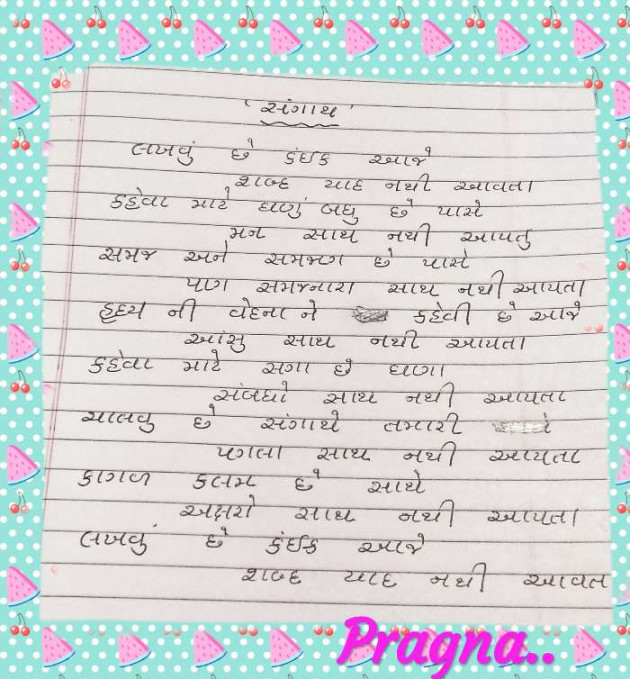 'સંગાથ'
લખવું છે કંઇક આજે
શબ્દ યાદ નથી આવતા
કહેવા માટે ઘણું બધુ છે પાસે
મન સાથ નથી આપતુ
સમજ અને સમજણ છે પાસે
પણ સમજનારા સાથ નથી આપતા
હૃદય ની વેદના ને કહેવી છે આજે
આંસુ સાથ નથી આપતા
કહેવા માટે સગા છે ઘણા
સંબધો સાથ નથી આપતા
ચાલવુ છે સંગાથે તમારી
પગલા સાથ નથી આપતા
કાગળ કલમ છે સાથે
અક્ષરો સાથ નથી આપતા
લખવું છે કંઇક આજે
શબ્દ યાદ નથી આવત
Pragna..